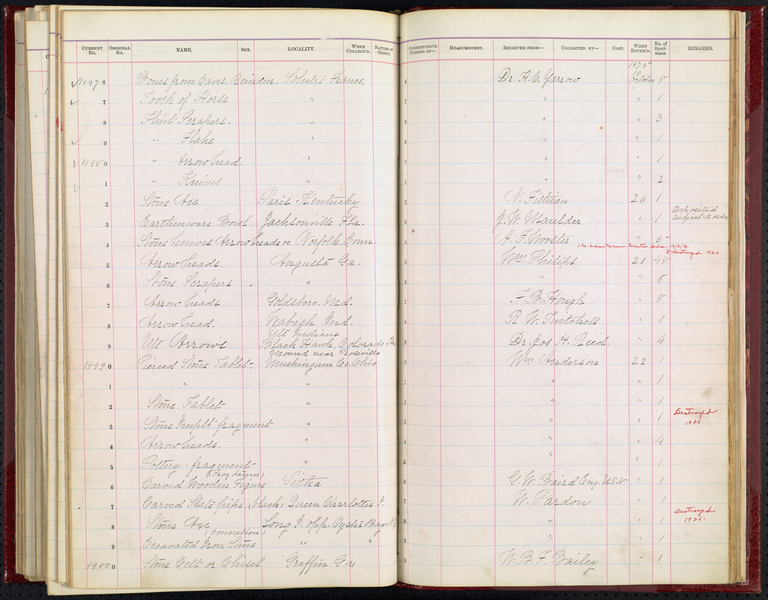 CURRENT No. ORIGINAL No. NAME. SEX. LOCALITY. WHEN COLLECT'D. NATURE OF OBJECT. CORRESPOND'G NUMBER OF— MEASUREMENT. RECEIVED FROM— COLLECTED BY— COST. WHEN ENTER'D. No. of Specimens. REMARKS.
1875
1897 6 Bones from Cave, Reindeer. France Dr. H. C. Yarrow October 8
7 Tooth of Horse " " " 1
8 Flint Scrapers. " " " 3
9 " Flake " " " 1
1898 0 " Arrow head. " " " 1
1 " Knives " " " 2
2 Stone Axe Paris Kentucky N. 20 1
3 Earthenware Bowl Jacksonville Fla. J. W. " 1 Deposited Subject to order
4 Stone Knives Arrowheads &c Norfolk Conn. A. F. Wooster " 5
Destroyed 1922
5 Arrow heads. Augusta Ga. Wm. Philips 21 48
6 Stone Scrapers. " " " 6
7 Arrow heads Goldsboro. Md. F. B. Hough " 8
8 Arrow head. Wabash Ind. R. W. " 1
Ute Indians
9 Ute Arrows Black Hawk, Colorado Dr. Jos. H. " 4
Mound near
1899 0 Pierced Stone Tablet- Muskingum Co. Ohio Wm. Anderson 22 1
1 " " " " 1
2 Stone Tablet " " " 1
3 Stone Implt. fragment " " " 1 Destroyed 1922
4 Arrow heads. " " " 4
5 Pottery, fragment- " " " 1
6 Carved Wooden Figure Sitka G. W. Baird Eng. U.S.N. " 1
7 Carved Slate pipe, (black) Queen Charlotte's I. W. Pardon " 1
8 Stone Axe Long I. opp. Oyster Bay " " 1 Destroyed 1922.
(concretion)
9 Excavated Iron Stone " " " " 1
1900 0 Stone Celt or Chisel Griffin Ga W. B. F. Bailey " 1